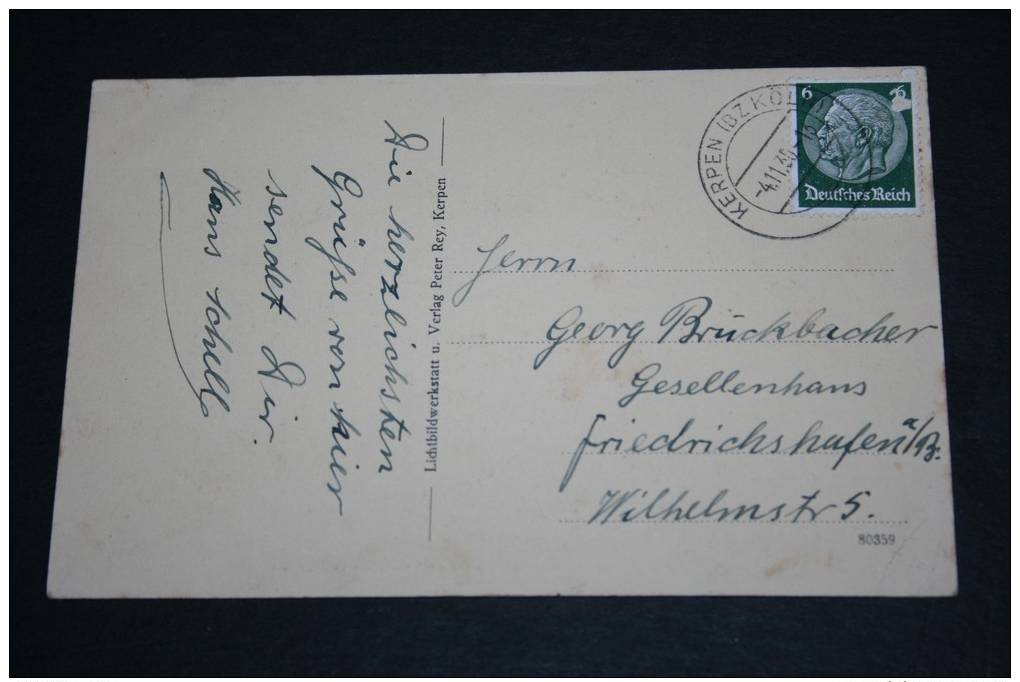 Die herzlichsten
Grüsse von hier
sendet Dir.
Hans Schell
Lichtbildwerkstatt u. Verlag Peter Rey, Kerpen
KERPEN (BZ KÖLN)
-4.11.36
6 6
Deutsches Reich
Herrn
Georg Bruckbacher
Gesellenhaus
Friedrichshafen a/B.
Wilhelmstr 5.
80359